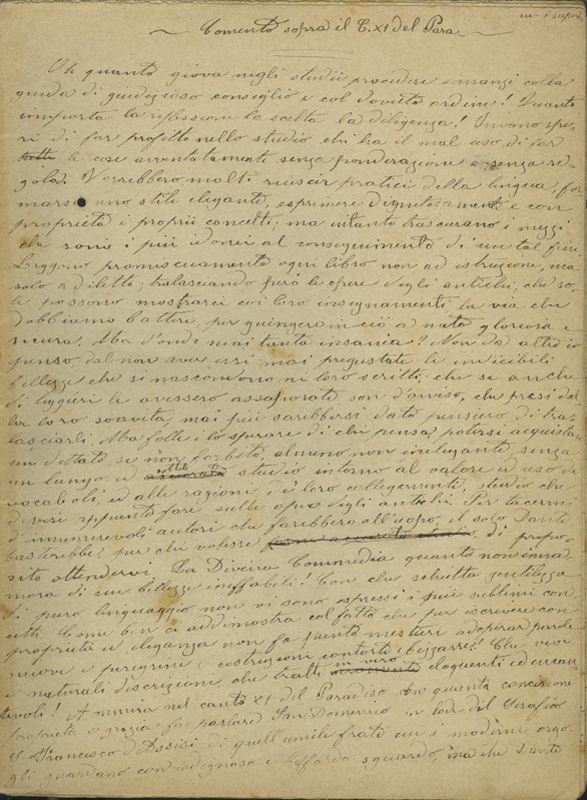 Comento sopra il C. XI del Para
Oh quanto giova negli studii procedere innanzi colla
guida di giudizioso consiglio e col dovuto ordine! Quanto
importa la riflessione la scelta la diligenza! Invano spe-
ri di far profitto nello studio chi ha il mal uso di far
tutte le cose avventatamente senza ponderazione e senza re-
gola. Vorrebbero molti riuscir pratici della lingua, for
marsi uno stile elegante, esprimere dignitosamente e con
proprietà i proprii concetti; ma intanto trascurano i mezzi
che sono i più idonei al conseguimento di un tal fine.
Leggono promiscuamente ogni libro non ad istruzione, ma
solo a diletto, tralasciando però le opere degli antichi, che so-
le possono mostrarci coi loro insegnamenti la via che
dobbiamo battere per giungere in ciò a meta gloriosa e
sicura. Ma d'onde mai tanta insania? Non da altro io
penso, dal non aver essi mai pregustate le incredibili
bellezze che si nascondono ne' loro scritti; che se anche
di leggeri le avessero assaporate son d'avviso, che presi dal
la loro soavità, mai più sarebbersi dato pensiero di tra-
lasciarli. Ma folle è lo sperare di chi pensa potersi acquistare
un dettato se non forbito, almeno non inelegante senza
un lungo ed accurato studio intorno al valore ed uso de'
vocaboli e alle ragioni de' loro collegamenti, studio che
devesi appunto fare sulle opere degli antichi. Per tacermi
d'innumerevoli autori che farebbero all'uopo, il solo Dante
basterebbe, pur che volesse di propo-
sito attendervi. La Divina Commedia quanto non inna-
mora di sue bellezze ineffabili! Con che schietta gentilezza
di puro linguaggio non vi sono espressi i più sublimi con
cetti. Come ben ci addimostra col fatto che per iscrivere con
proprietà e eleganza non fa punto mestieri adoperar parole
nuove e peregrine e costruzioni contorte e bizzarre! Che vive
e naturali descrizioni che tratti in vero eloquenti ed incan
tevoli! Ammira nel canto XI del Paradiso con quanta concisione
proprietà e grazia fa parlare San Domenico in lode del Serafico
S. Francesco d'Assisi di quell'umile frate cui i moderni orgo-
gli guardano con isdegnoso e beffardo sguardo, ma che Dante